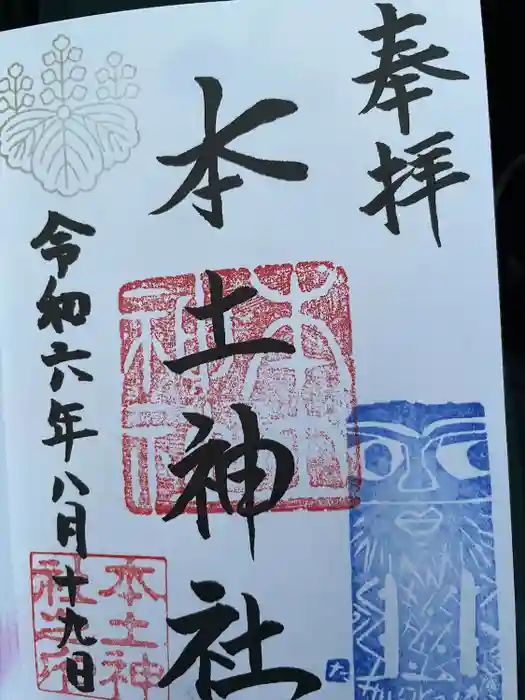 奉拝
本土神社
令和六年八月十九日
本土神
社之印